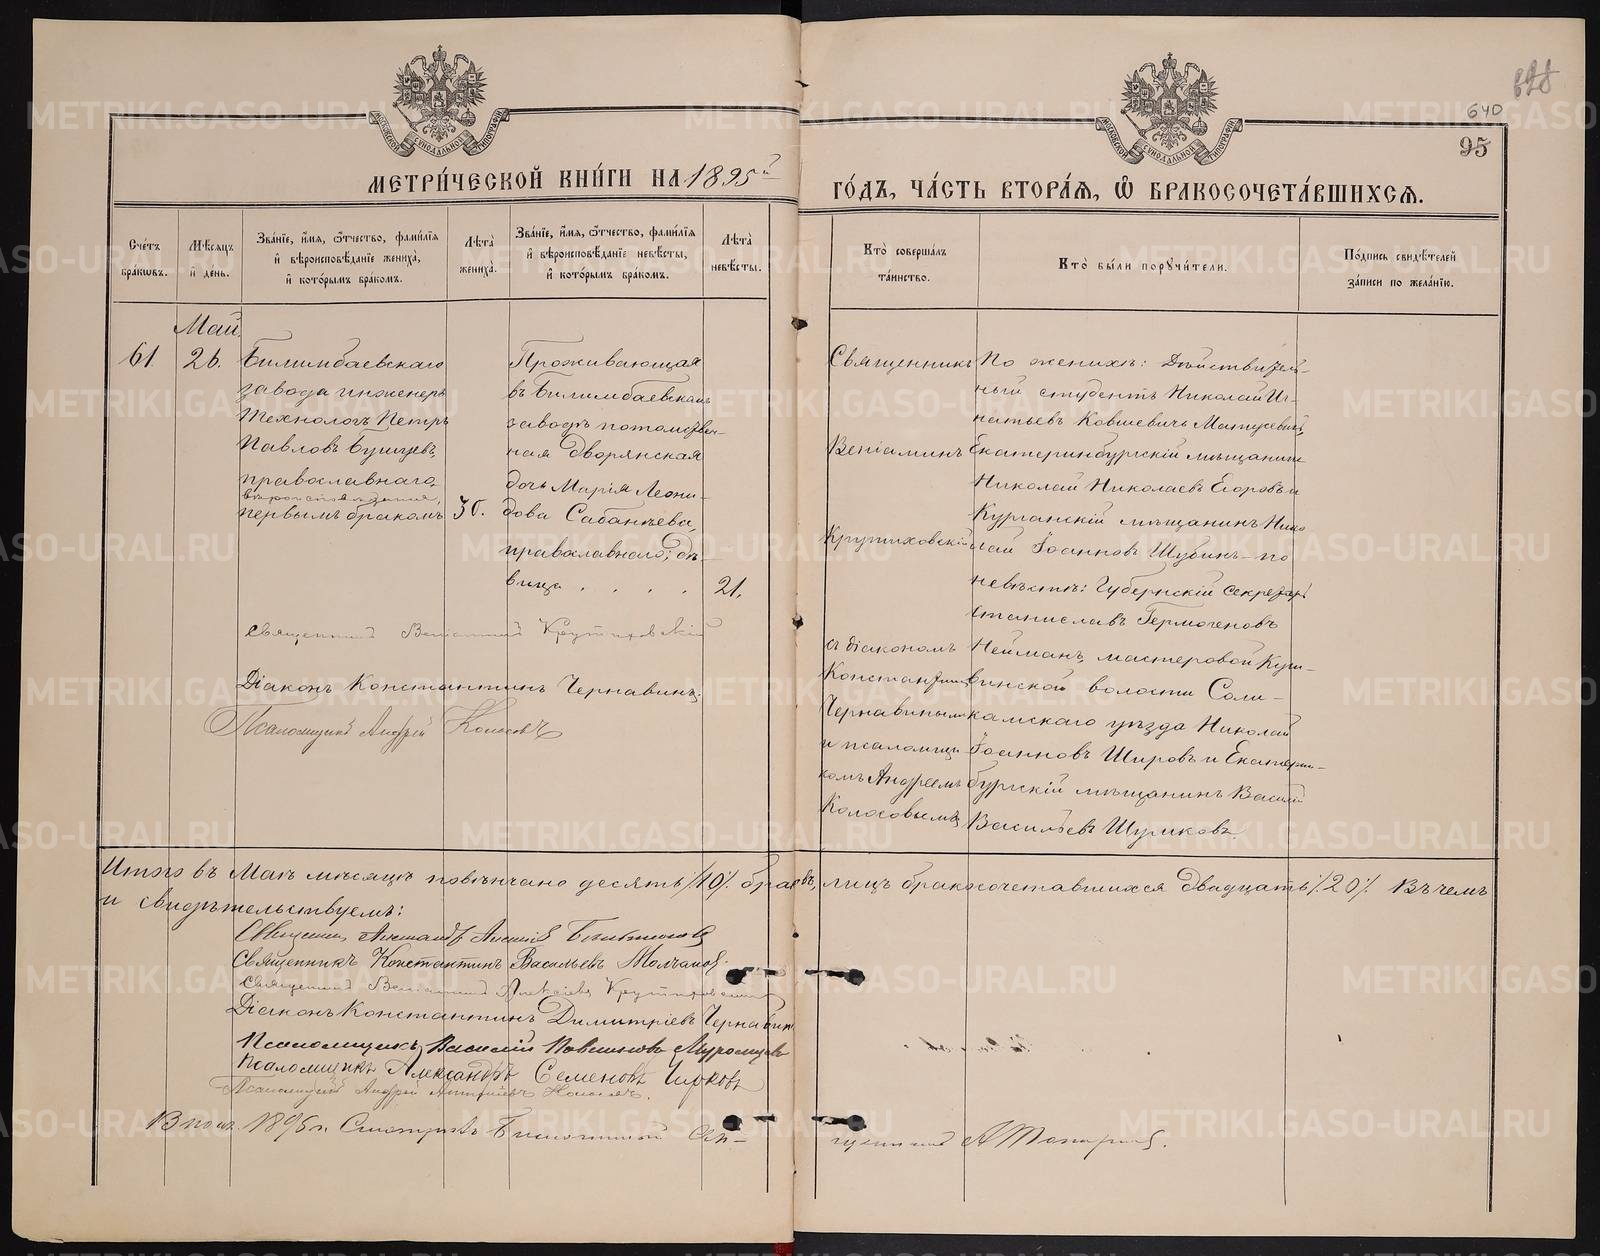 628
640
95
МЕТРИ́ЧЕСКОЙ КНИ́ГИ НА 1895й
ГО́ДЪ, ЧА́СТЬ ВТОРА́Я, Ѿ БРАКОСОЧЕТА́ВШИХСЯ.
Сче́тъ бра́ковъ.
Мѣ́сяцъ и́ день.
Зва́нїе, и́мя, ѻ́тчество, фамѝлїя и́ вѣроисповѣ́данїе жениха̀, и́ кото́рымъ бра́комъ.
Лѣ́та жениха̀.
Зва́нїе, и́мя, ѻ́тчество, фамѝлїя и́ вѣроисповѣ́данїе невѣ́сты, и́ кото́рымъ бра́комъ.
Лѣ́та невѣ́сты.
Кто̀ соверша́лъ та́инство.
Кто̀ бы́ли пору́чители.
По́дпись свидѣ́телей за́писи по жела́нїю.
Май
61.
26.
Билимбаевскаго
завода инженеръ
Технологъ Петръ
Павловъ
православнаго
вѣроисповѣданія,
первымъ бракомъ
30.
Проживающая
въ Билимбаевскомъ
заводѣ потомствен-
ная Дворянская
дочь Марія Леони-
дова Сабанѣева,
православнаго; дѣ-
вица . . . .
21.
Священникъ
Веніаминъ
Крутиховскій
съ діакономъ
Константиномъ
Чернавинымъ
и псаломщи
комъ Андреемъ
Колосовымъ
По женихѣ: Дѣйствитель-
ный студентъ Николай Иг-
натьевъ Ковшевичъ Матусевичъ,
Екатеринбургскій мѣщанинъ
Николай Николаевъ Егоровъ и
Курганскій мѣщанинъ Нико
лай Іоанновъ Шубинъ – по
невѣстѣ: Губернскій секретарь
Станиславъ Гермогеновъ
Нейманъ, мастеровой Кури-
винской волости Соли-
камскаго уѣзда Николай
Іоанновъ Шировъ и Екатерин-
бургскій мѣщанинъ Василій
Васильевъ Шумковъ.
Священникъ Веніаминъ Крутиховскій
Діаконъ Константинъ Чернавинъ.
Псаломщикъ Андрей Колосовъ
Итого въ Маѣ мѣсяцѣ повѣнчано десять /10/. браковъ, лицъ бракосочетавшихся двадцать /.20/. Въ чемъ
и свидѣтельствуемъ:
Священникъ
Священникъ Константинъ Васильевъ Молчановъ.
Священникъ Веніаминъ Алексіевъ Крутиховскій
Діаконъ Константинъ Димитріевъ Чернавинъ
Псаломщикъ Василій Муромцевъ
Псаломщикъ Александръ Семеновъ Чирковъ
Псаломщикъ Андрей Колосовъ.
1895 г. Смотрѣлъ Благочинный Свя-
щенникъ